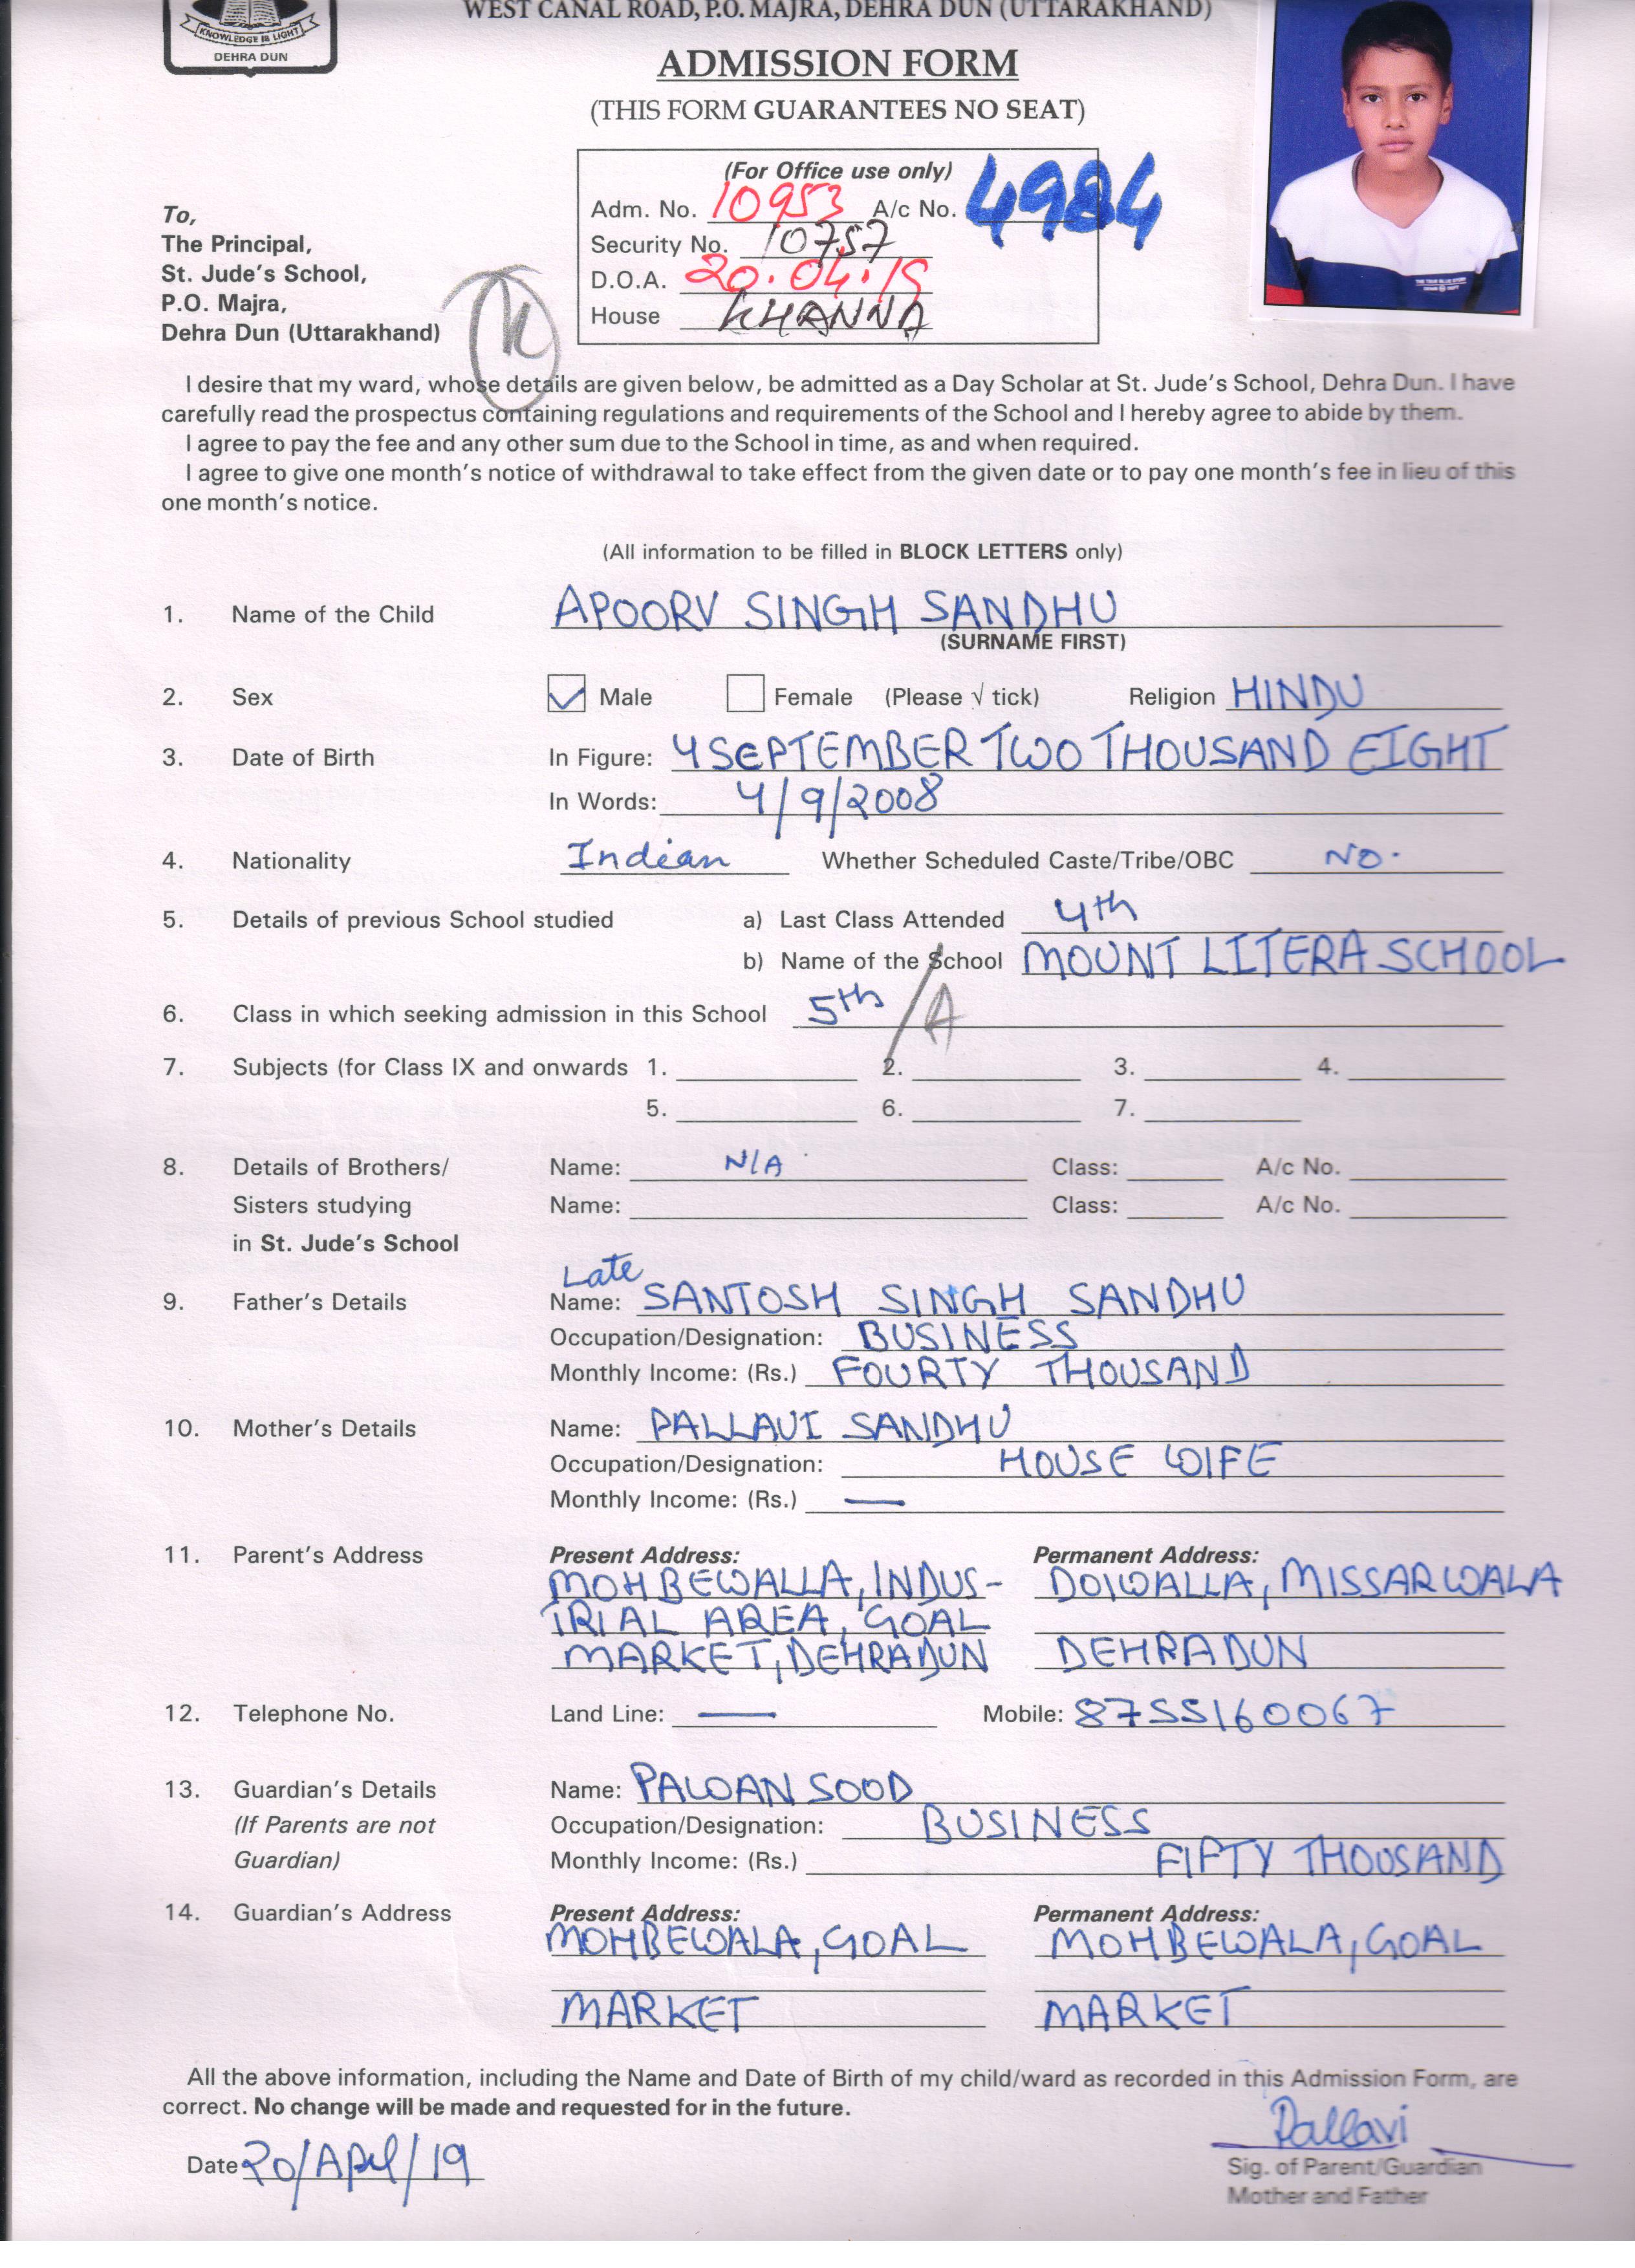 WEST CANAL ROAD, P.O. MAJRA, DEHRA DUN (UTTARAKHAND)
KNOWLEDGE IS LIGHT
DEHRA DUN
ADMISSION FORM
(THIS FORM GUARANTEES NO SEAT)
(For Office use only)
Adm. No. 10953 A/c No. 4984
Security No. 10757
D.O.A. 20.04.19
House KHANNA
To,
The Principal,
St. Jude's School,
P.O. Majra,
Dehra Dun (Uttarakhand)
I desire that my ward, whose details are given below, be admitted as a Day Scholar at St. Jude's School, Dehra Dun. I have
carefully read the prospectus containing regulations and requirements of the School and I hereby agree to abide by them.
I agree to pay the fee and any other sum due to the School in time, as and when required.
I agree to give one month's notice of withdrawal to take effect from the given date or to pay one month's fee in lieu of this
one month's notice.
(All information to be filled in BLOCK LETTERS only)
1. Name of the Child APOORV SINGH SANDHU
(SURNAME FIRST)
2. Sex Male Female (Please √ tick) Religion HINDU
3. Date of Birth In Figure: 4 SEPTEMBER TWO THOUSAND EIGHT
In Words: 4/9/2008
4. Nationality Indian Whether Scheduled Caste/Tribe/OBC NO.
5. Details of previous School studied a) Last Class Attended 4th
b) Name of the School MOUNT LITERA SCHOOL
6. Class in which seeking admission in this School 5th / A
7. Subjects (for Class IX and onwards 1. 2. 3. 4.
5. 6. 7.
8. Details of Brothers/ Name: N/A Class: A/c No.
Sisters studying Name: Class: A/c No.
in St. Jude's School
Late
9. Father's Details Name: SANTOSH SINGH SANDHU
Occupation/Designation: BUSINESS
Monthly Income: (Rs.) FOURTY THOUSAND
10. Mother's Details Name: PALLAVI SANDHU
Occupation/Designation: HOUSE WIFE
Monthly Income: (Rs.) —
11. Parent's Address Present Address: Permanent Address:
MOHBEWALLA, INDUS- DOIWALLA, MISSARWALA
TRIAL AREA, GOAL
MARKET, DEHRADUN DEHRADUN
12. Telephone No. Land Line: — Mobile: 8755160067
13. Guardian's Details Name: PAWAN SOOD
(If Parents are not Occupation/Designation: BUSINESS
Guardian) Monthly Income: (Rs.) FIFTY THOUSAND
14. Guardian's Address Present Address: Permanent Address:
MOHBEWALA, GOAL MOHBEWALA, GOAL
MARKET MARKET
All the above information, including the Name and Date of Birth of my child/ward as recorded in this Admission Form, are
correct. No change will be made and requested for in the future.
Pallavi
Date 20/April/19 Sig. of Parent/Guardian
Mother and Father